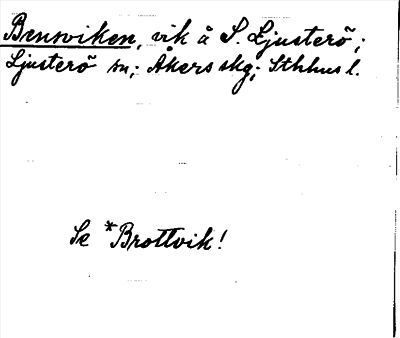 Bensviken, vik å S. Ljusterö;
Ljusterö sn; Åkers skg; Sthlms l.
Se *Brottvik!